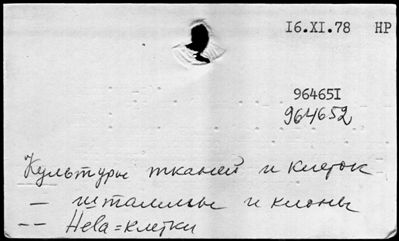 16.XI.78 НР
964651
964652
Культуры тканей и клеток
— штаммы и клоны
-- Hela=клетки